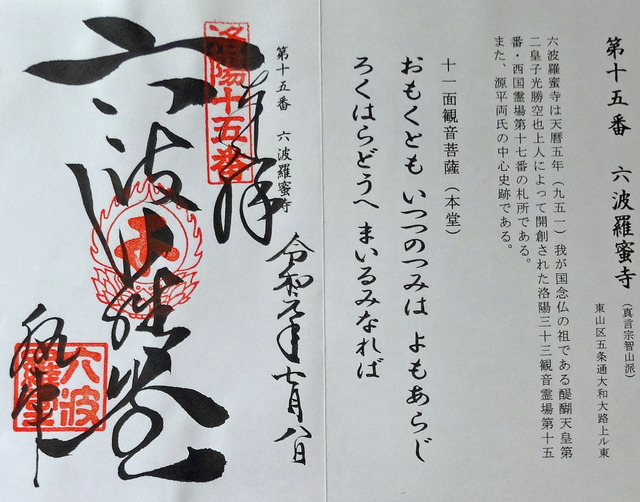 第十五番 六波羅蜜寺
(真言宗智山派)
東山区五条通大和大路上ル東
六波羅蜜寺は天暦五年(九五一)我が国念仏の祖である醍醐天皇第
二皇子光勝空也上人によって開創された洛陽三十三観音霊場第十五
番・西国霊場第十七番の札所である。
また、源平両氏の中心史跡である。
十一面観音菩薩(本堂)
おもくとも いつつのつみは よもあらじ
ろくはらどうへ まいるみなれば
第十五番 六波羅蜜寺
洛陽十五番
奉拝
令和元年七月八日
六波羅蜜寺
六波
羅蜜